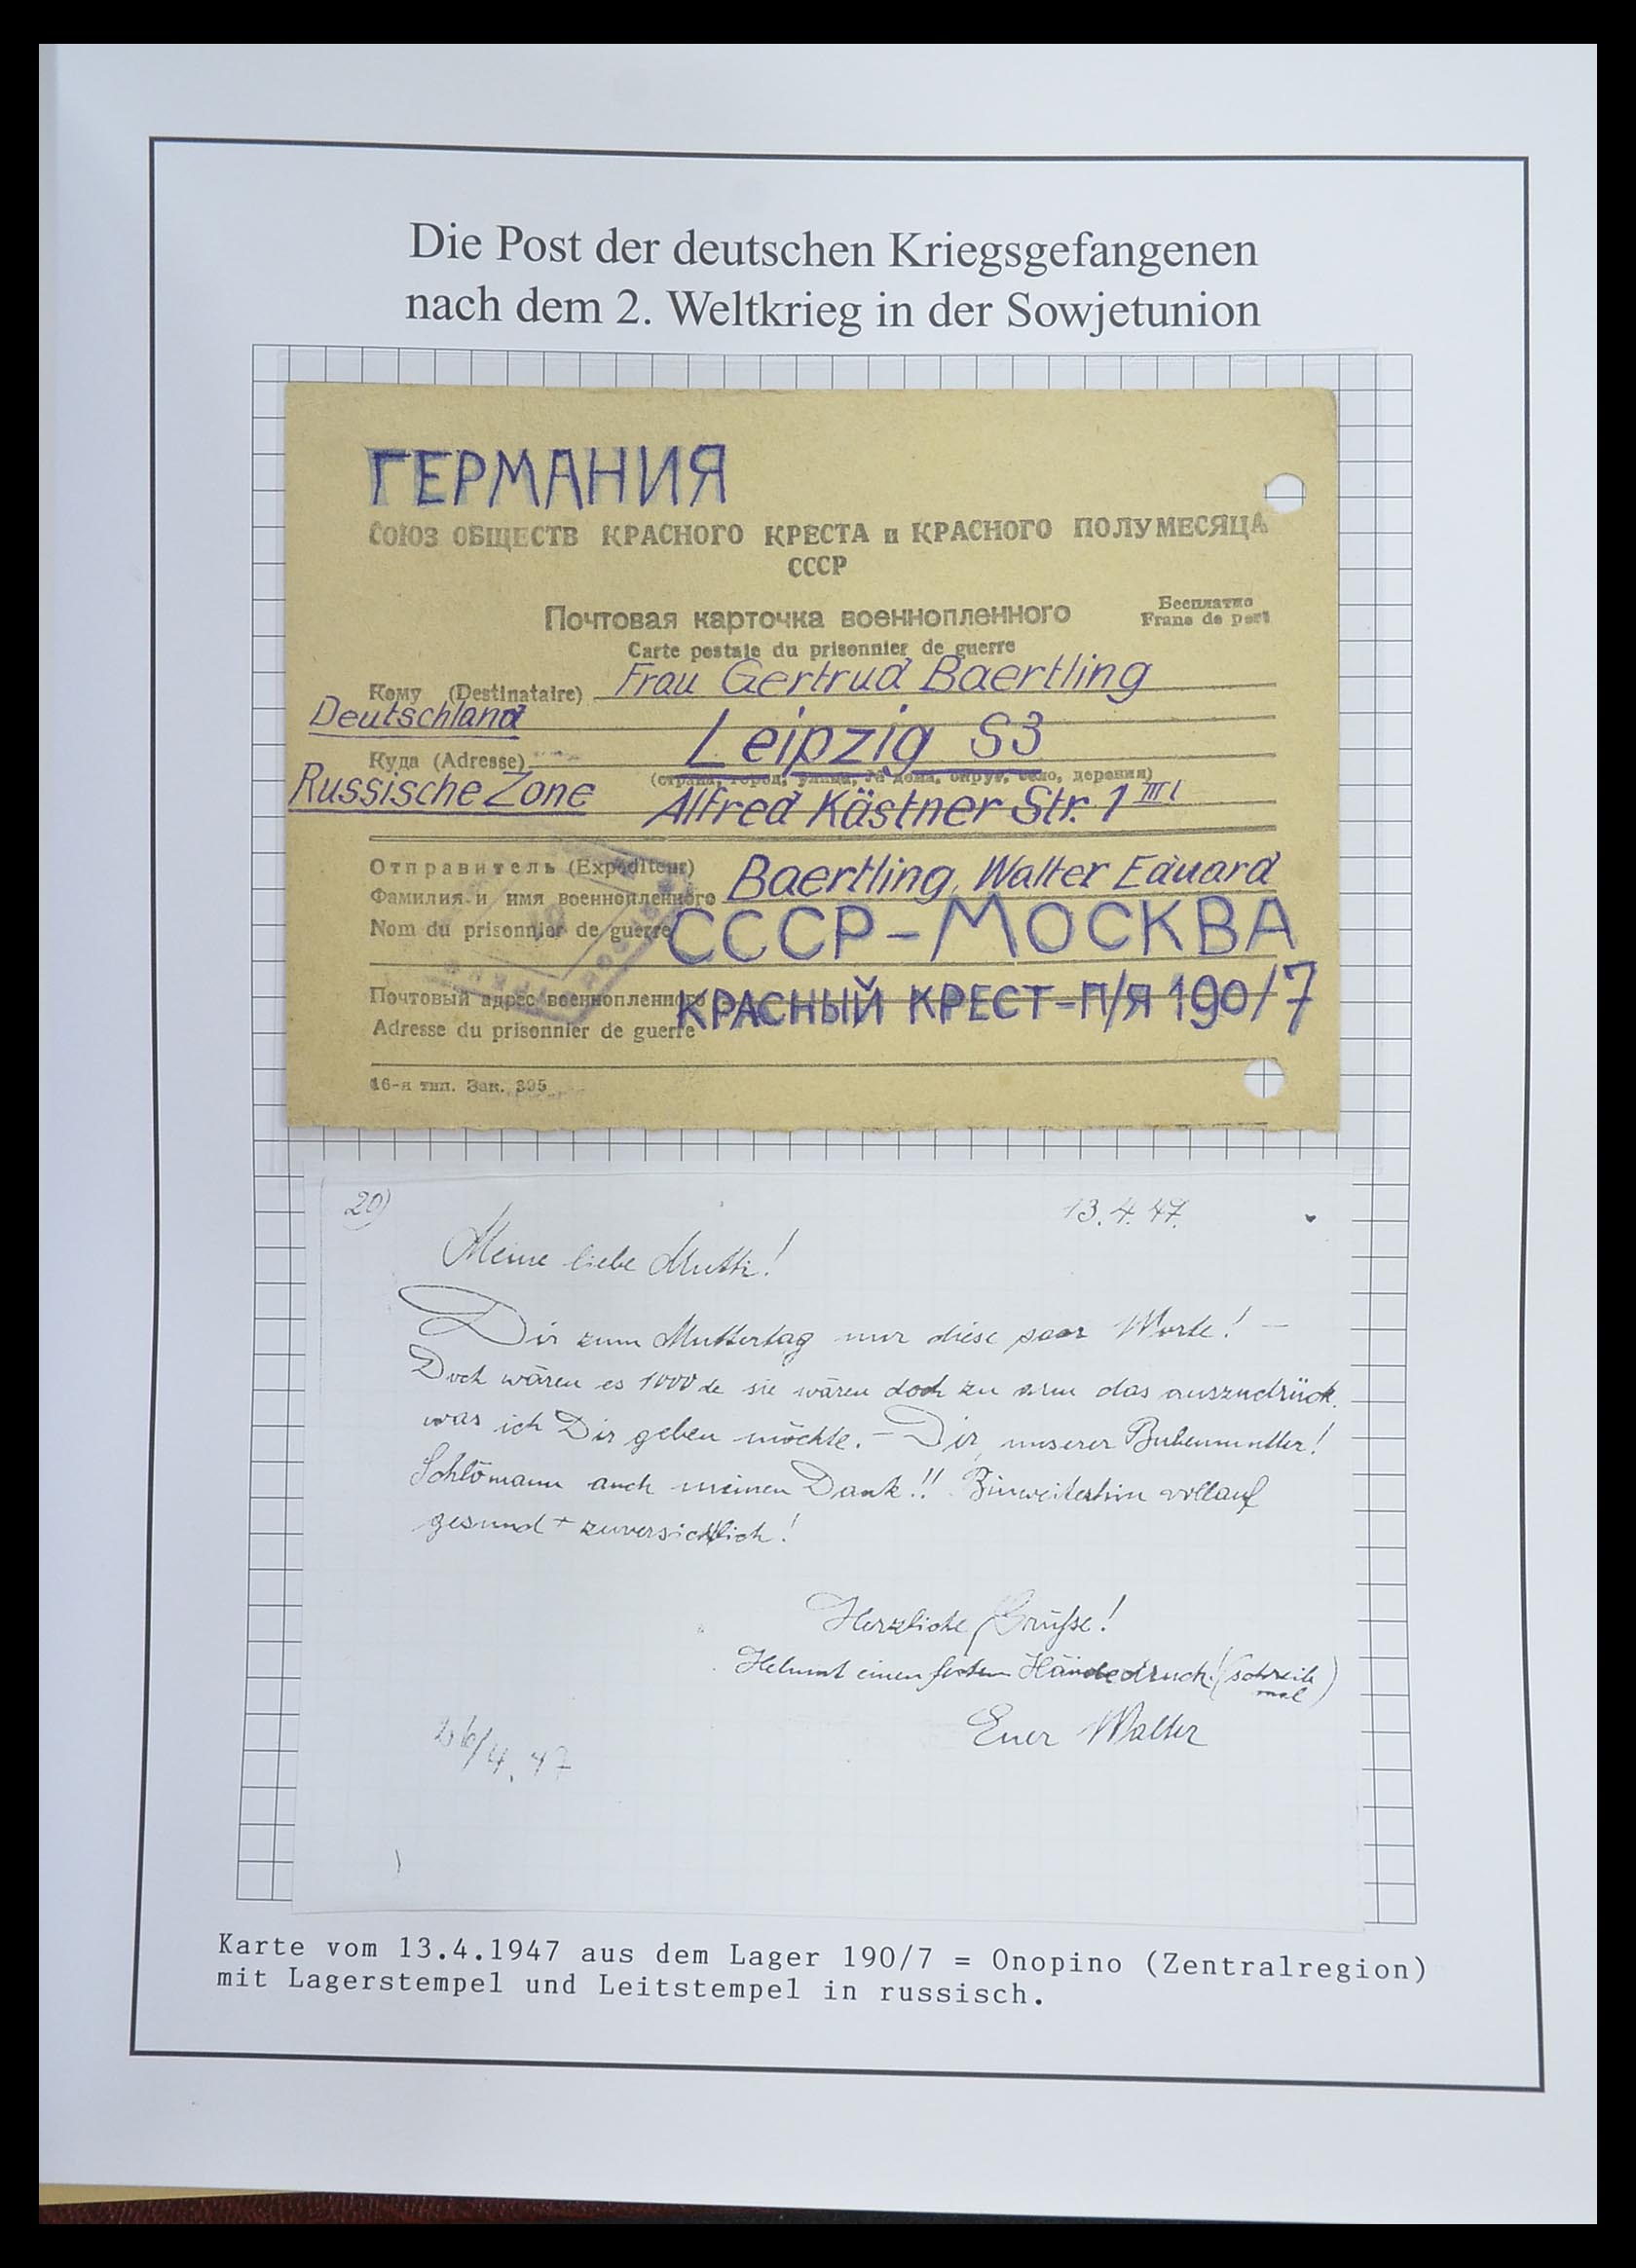 Die Post der deutschen Kriegsgefangenen
nach dem 2. Weltkrieg in der Sowjetunion
ГЕРМАНИЯ
СОЮЗ ОБЩЕСТВ КРАСНОГО КРЕСТА и КРАСНОГО ПОЛУМЕСЯЦА
СССР
Почтовая карточка военнопленного
Бесплатно
Franc de port
Carte postale du prisonnier de guerre
Кому (Destinataire) Frau Gertrud Baertling
Deutschland
Leipzig S3
Куда (Adresse)
(страна, город, улица, № дома, округ, село, деревня)
Russische Zone
Alfred Kästner Str. 1 III l
Отправитель (Expéditeur)
Baertling, Walter Eduard
Фамилия и имя военнопленного
Nom du prisonnier de guerre
СССР-МОСКВА
Почтовый адрес военнопленного
КРАСНЫЙ КРЕСТ-П/Я 190/7
Adresse du prisonnier de guerre
16-я тип. Зак. 395
20)
13.4.47.
Meine liebe Mutti!
Dir zum Muttertag nur diese paar Worte! –
Doch wären es 1000de sie wären doch zu arm das auszudrück.
was ich Dir geben möchte. – Dir, unserer Bubenmutter!
Schlömann auch meinen Dank!! Bin weiterhin vollauf
gesund + zuversichtlich!
Herzliche Grüße!
Helmut einen festen Händedruck! (schreib
mal)
Euer Walter
26/4.47
Karte vom 13.4.1947 aus dem Lager 190/7 = Onopino (Zentralregion)
mit Lagerstempel und Leitstempel in russisch.